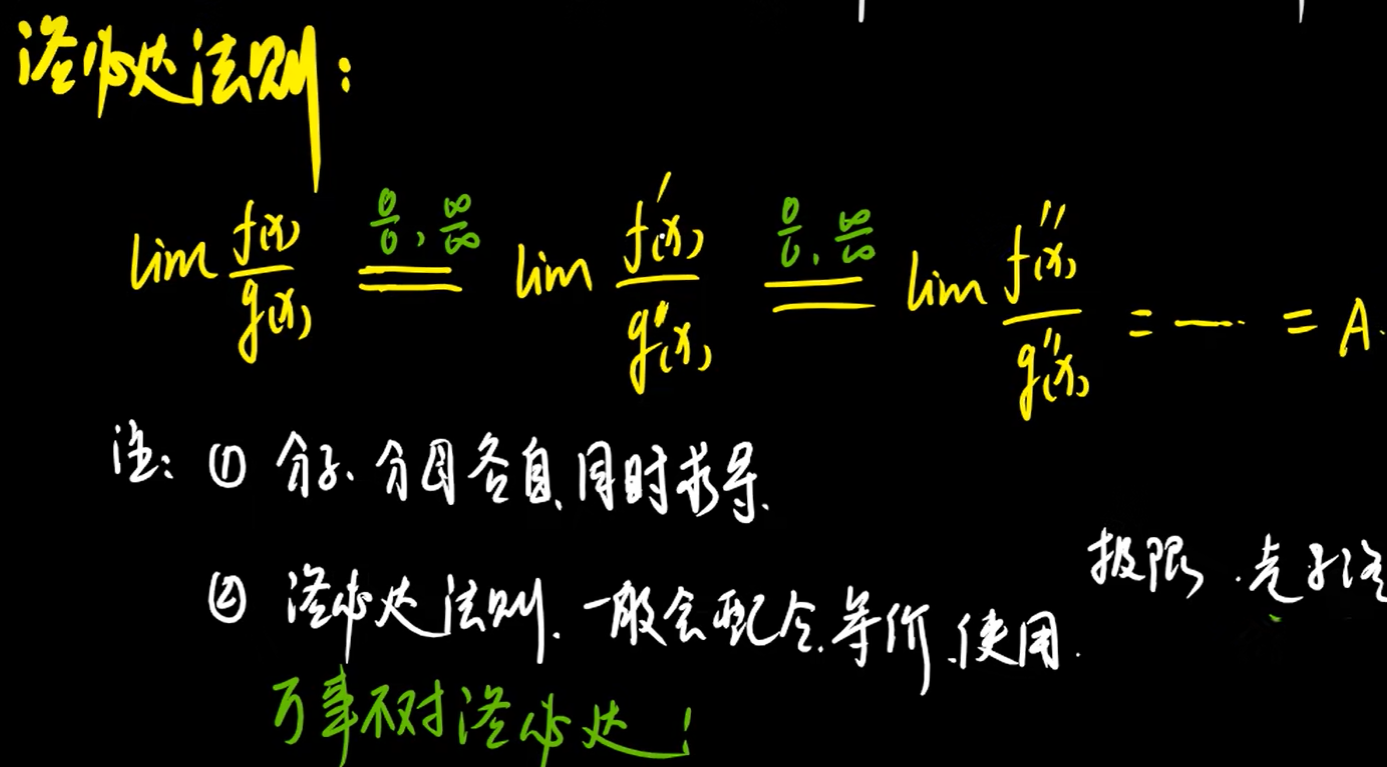 洛必达法则:
lim f(x)/g(x) =(0/0, ∞/∞)= lim f'(x)/g'(x) =(0/0, ∞/∞)= lim f''(x)/g''(x) = … = A.
注: ① 分子、分母各自、同时求导.
极限.
② 洛必达法则、一般会配合、等价、使用.
万事不对洛必达!